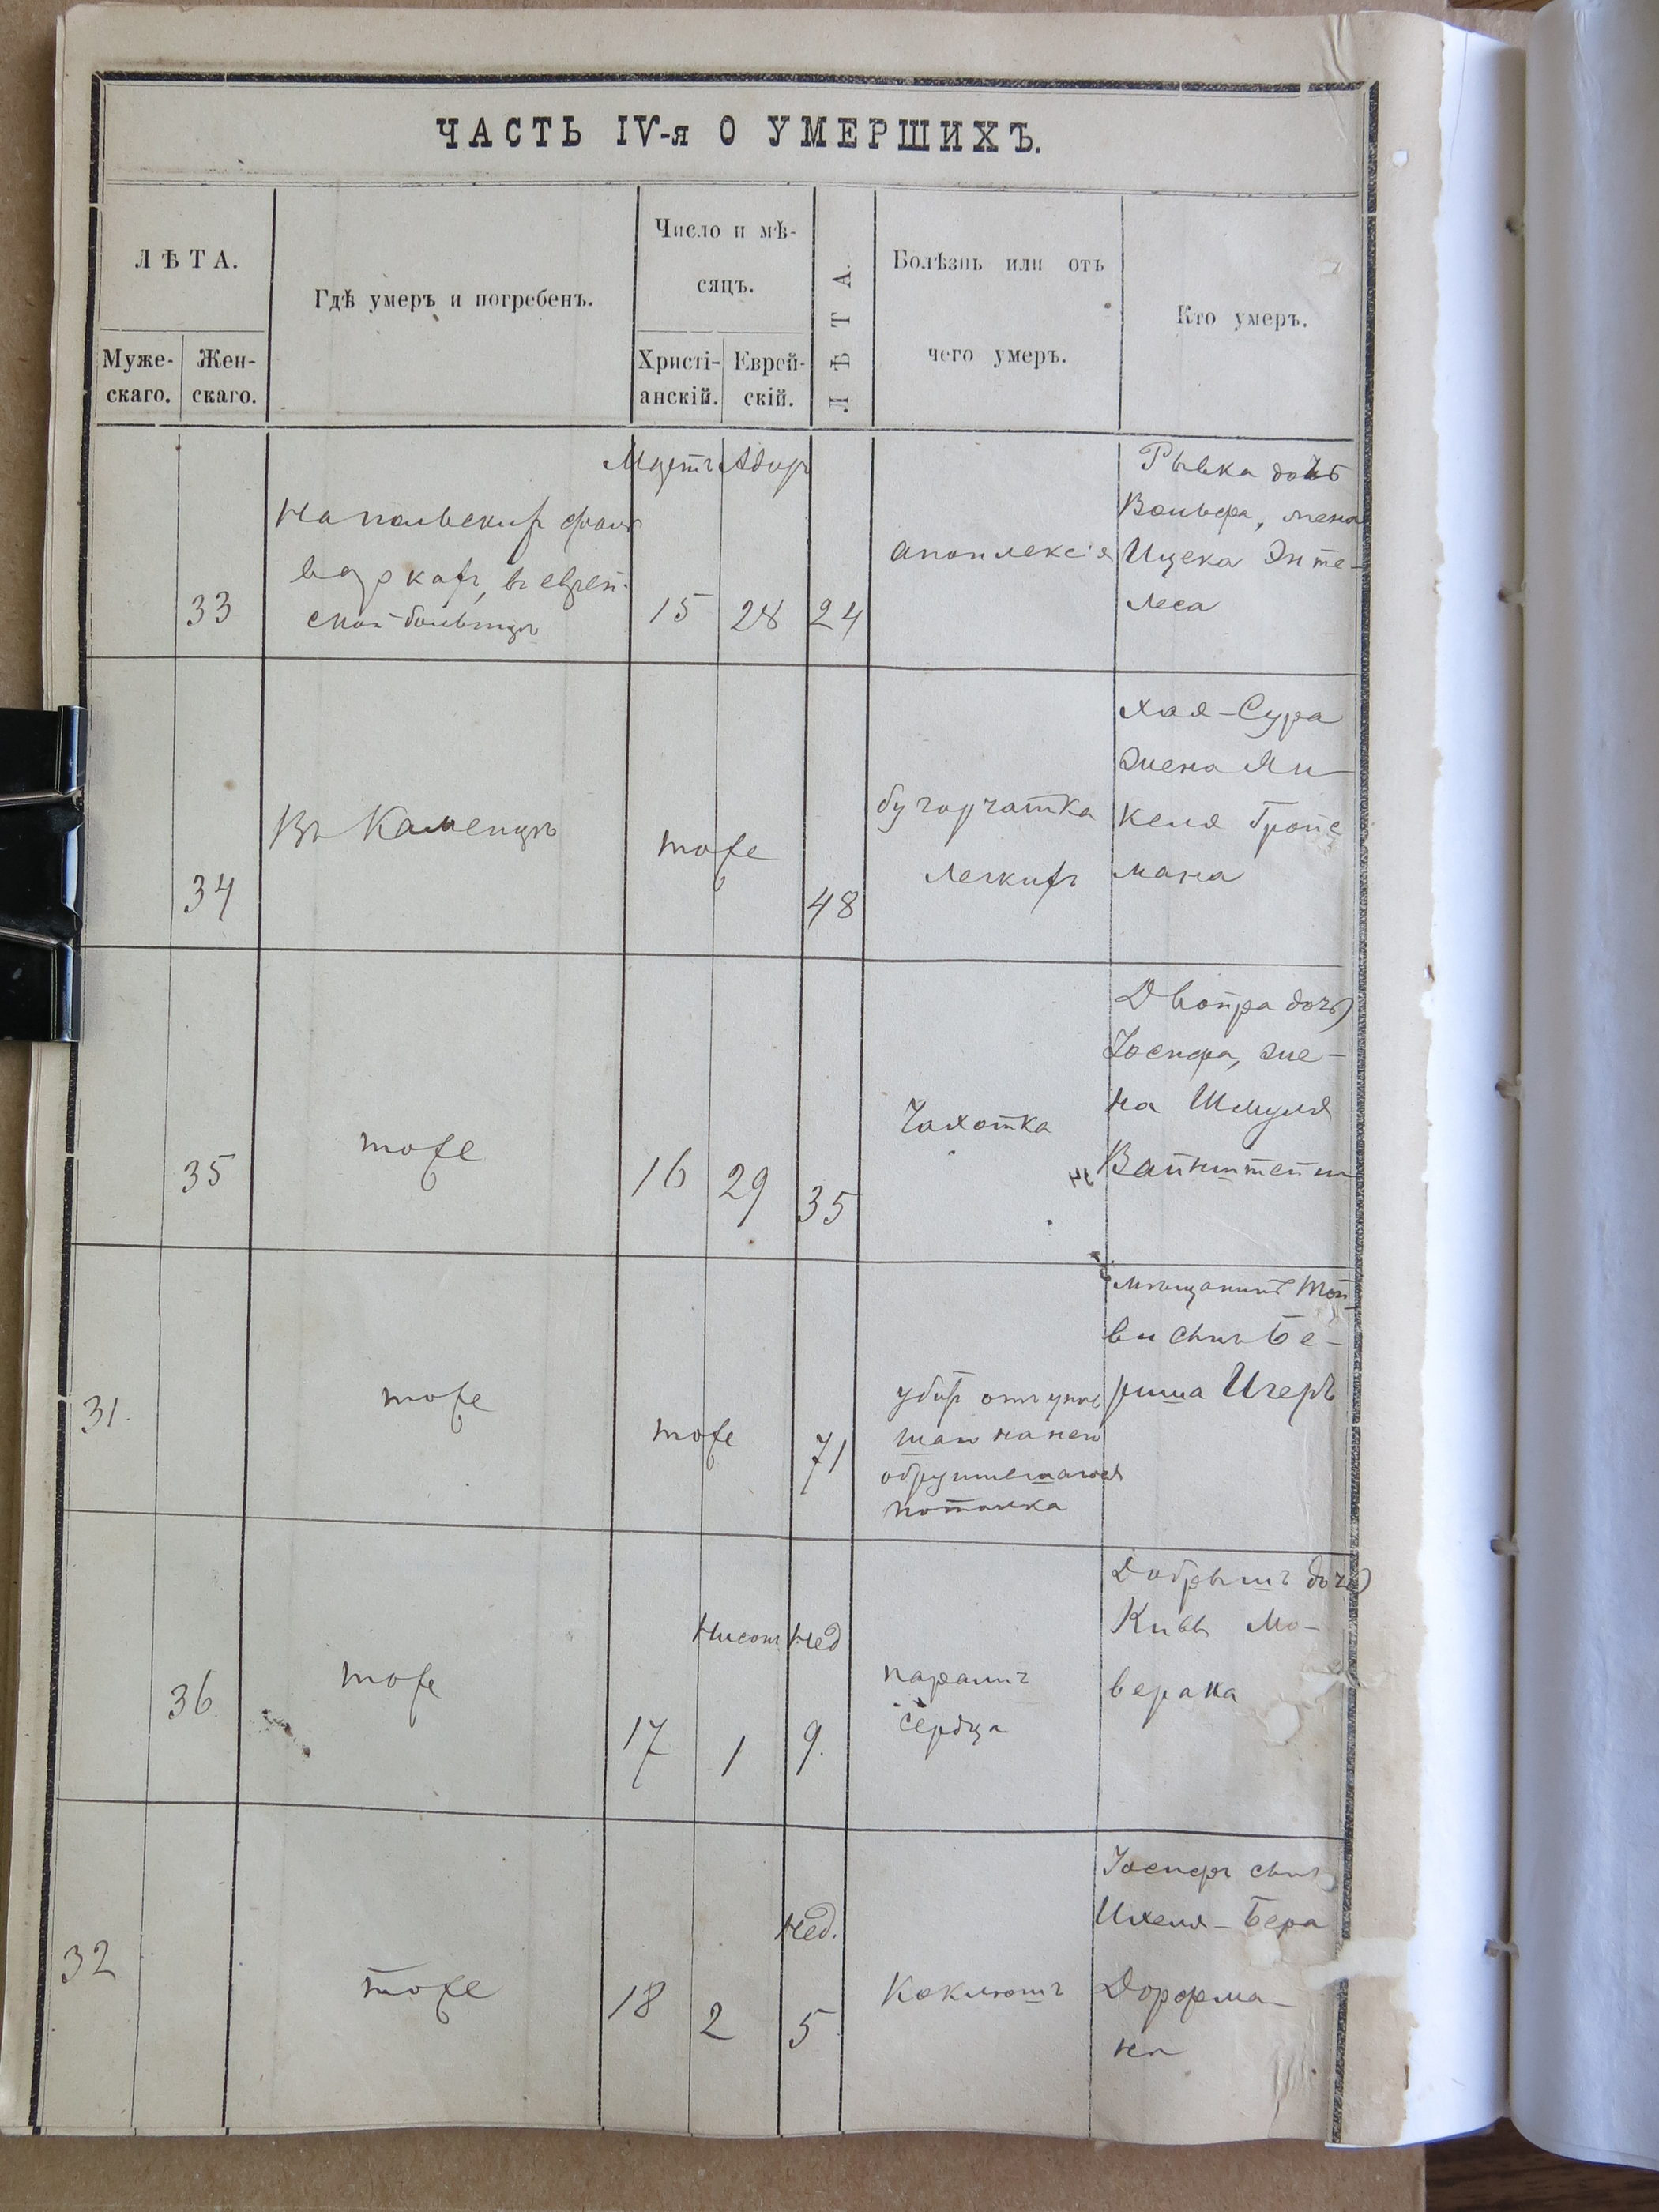 ЧАСТЬ IV-я О УМЕРШИХЪ.
ЛѢТА.
Муже-
скаго.
Жен-
скаго.
Гдѣ умеръ и погребенъ.
Число и мѣ-
сяцъ.
Христі-
анскій.
Еврей-
скій.
ЛѢТА.
Болѣзнь или отъ
чего умеръ.
Кто умеръ.
33
На польскихъ фоль
варкахъ, въ еврей-
ской больницѣ
Мартъ
15
Адаръ
28
24
апоплексія
Рывка дочь
Вольфа, жена
Ицека Энте-
леса
34
Въ Каменцѣ
тоже
48
бугорчатка
легкихъ
Хая-Сура
жена Ян-
келя
мана
35
тоже
16
29
35
Чахотка
Двойра дочь
Іосифа, же-
на Шмуля
Вайнштейн
31.
тоже
тоже
71
убитъ отъ
обрушившагося
потолка
мѣщанинъ
ви сынъ Бе-
риша Игеръ
36
тоже
17
Нисонъ
1
Нед
9.
параличъ
сердца
дочь
Кивы Мо-
верана
32
тоже
18
2
Нед.
5
Коклюшъ
Іосифъ сынъ
Ихеля-Бера
Дорфма-
на